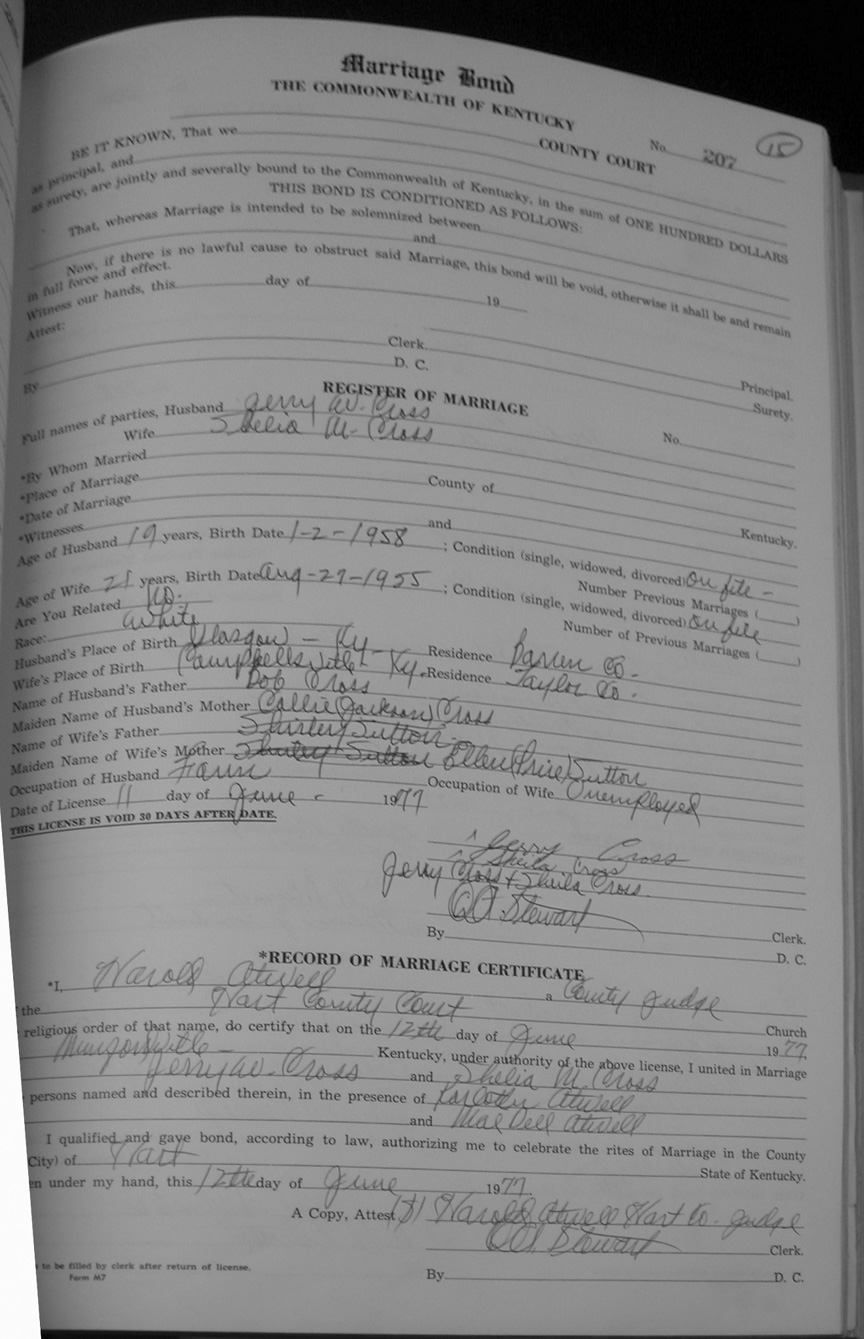 Marriage Bond
THE COMMONWEALTH OF KENTUCKY
No. 207 15
BE IT KNOWN, That we COUNTY COURT
as principal, and
as surety, are jointly and severally bound to the Commonwealth of Kentucky, in the sum of ONE HUNDRED DOLLARS
THIS BOND IS CONDITIONED AS FOLLOWS:
That, whereas Marriage is intended to be solemnized between
and
Now, if there is no lawful cause to obstruct said Marriage, this bond will be void, otherwise it shall be and remain
in full force and effect.
Witness our hands, this day of 19
Attest:
Clerk.
Principal.
By D. C.
Surety.
REGISTER OF MARRIAGE
Full names of parties, Husband Jerry W. Cross No.
Wife Shelia M. Cross
*By Whom Married
*Place of Marriage County of Kentucky.
*Date of Marriage
*Witnesses and
Age of Husband 19 years, Birth Date 1-2-1958 ; Condition (single, widowed, divorced) On file -
Number Previous Marriages ( )
Age of Wife 21 years, Birth Date Aug-27-1955 ; Condition (single, widowed, divorced) On file
Are You Related No. Number of Previous Marriages ( )
Race: White
Husband's Place of Birth Glasgow - Ky- Residence Barren Co.
Wife's Place of Birth Campbellsville Ky. Residence Taylor Co.
Name of Husband's Father Bob Cross
Maiden Name of Husband's Mother Callie (Jackson) Cross
Name of Wife's Father Shirley Sutton
Maiden Name of Wife's Mother Shirley Sutton Ellen (Price) Sutton
Occupation of Husband Farm Occupation of Wife Unemployed
Date of License 11 day of June - 1977
THIS LICENSE IS VOID 30 DAYS AFTER DATE.
Jerry Cross
Sheila Cross
Jerry Cross + Sheila Cross
Stewart Clerk.
By D. C.
*RECORD OF MARRIAGE CERTIFICATE
*I, Harold Atwell a County Judge
the Hart County Court Church
religious order of that name, do certify that on the 12th day of June 1977,
Munfordville - Kentucky, under authority of the above license, I united in Marriage
Jerry W. Cross and Shelia M. Cross
persons named and described therein, in the presence of Atwell
and Atwell
I qualified and gave bond, according to law, authorizing me to celebrate the rites of Marriage in the County
City) of Hart State of Kentucky.
en under my hand, this 12th day of June 1977.
A Copy, Attest (S) Harold Atwell Hart Co. Judge
Stewart Clerk.
to be filled by clerk after return of license.
Form M7
By D. C.